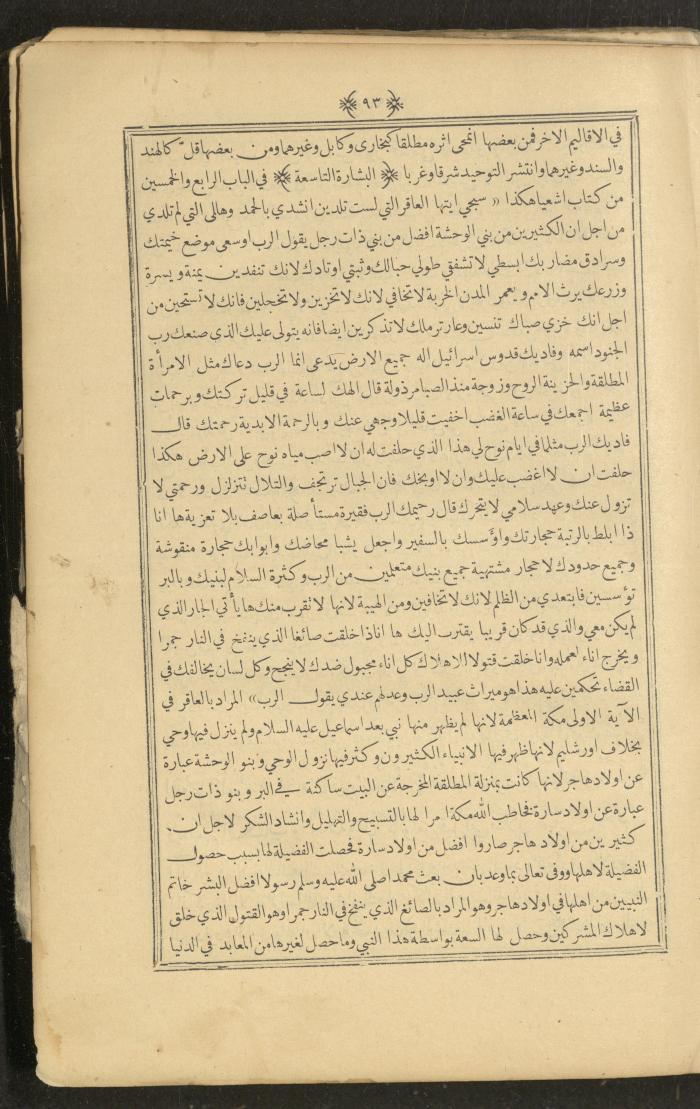 ﴿٩٣﴾
في الاقاليم الاخر فمن بعضها انمحى اثره مطلقا كبخارى وكابل وغيرهما ومن بعضها قلّ كالهند
والسند وغيرهما وانتشر التوحيد شرقا وغربا ﴿ البشارة التاسعة ﴾ في الباب الرابع والخمسين
من كتاب اشعيا هكذا « سبحي ايتها العاقر التي لست تلدين انشدي بالحمد وهللي التي لم تلدي
من اجل ان الكثيرين من بني الوحشة افضل من بني ذات رجل يقول الرب اوسعي موضع خيمتك
وسرادق مضاربك ابسطي لا تشفقي طولي حبالك وثبتي اوتادك لانك تنفدين يمنة ويسرة
وزرعك يرث الامم ويعمر المدن الخربة لا تخافي لانك لا تخزين ولا تخجلين فانك لا تستحين من
اجل انك خزي صباك تنسين وعار ترملك لا تذكرين ايضا فانه يتولى عليك الذي صنعك رب
الجنود اسمه وفاديك قدوس اسرائيل اله جميع الارض يدعى انما الرب دعاك مثل الامرأة
المطلقة والحزينة الروح وزوجة منذ الصبا مرذولة قال الهك لساعة في قليل تركتك وبرحمات
عظيمة اجمعك في ساعة الغضب اخفيت قليلا وجهي عنك وبالرحمة الابدية رحمتك قال
فاديك الرب مثلما في ايام نوح لي هذا الذي حلفت له ان لا اصب مياه نوح على الارض هكذا
حلفت ان لا اغضب عليك وان لا اوبخك فان الجبال ترتجف والتلال تتزلزل ورحمتي لا
تزول عنك وعهد سلامي لا يتحرك قال رحيمك الرب فقيرة مستأصلة بعاصف بلا تعزية ها انا
ذا ابلط بالرتبة حجارتك واؤسسك بالسفير واجعل يشبا محاضك وابوابك حجارة منقوشة
وجميع حدودك لاحجار مشتهية جميع بنيك متعلمين من الرب وكثرة السلام لبنيك وبالبر
تؤسسين فابتعدي من الظلم لانك لا تخافين ومن الهيبة لانها لا تقرب منك ها يأتي الجار الذي
لم يكن معي والذي قد كان قريبا يقترب اليك ها انا ذا خلقت صائغا الذي ينفخ في النار جمرا
ويخرج اناء لعمله وانا خلقت قتولا للاهلاك كل اناء مجبول ضدك لا ينجح وكل لسان يخالفك في
القضاء تحكمين عليه هذا هو ميراث عبيد الرب وعدلهم عندي يقول الرب» المراد بالعاقر في
الآية الاولى مكة المعظمة لانها لم يظهر منها نبي بعد اسماعيل عليه السلام ولم ينزل فيها وحي
بخلاف اورشليم لانها ظهر فيها الانبياء الكثيرون وكثر فيها نزول الوحي وبنو الوحشة عبارة
عن اولاد هاجر لانها كانت بمنزلة المطلقة المخرجة عن البيت ساكنة في البر وبنو ذات رجل
عبارة عن اولاد سارة فخاطب الله مكة امرا لها بالتسبيح والتهليل وانشاد الشكر لاجل ان
كثيرين من اولاد هاجر صاروا افضل من اولاد سارة فحصلت الفضيلة لها بسبب حصول
الفضيلة لاهلها ووفى تعالى بما وعد بان بعث محمدا صلى الله عليه وسلم رسولا افضل البشر خاتم
النبيين من اهلها في اولاد هاجر وهو المراد بالصائغ الذي ينفخ في النار جمرا وهو القتول الذي خلق
لاهلاك المشركين وحصل لها السعة بواسطة هذا النبي وما حصل لغيرها من المعابد في الدنيا